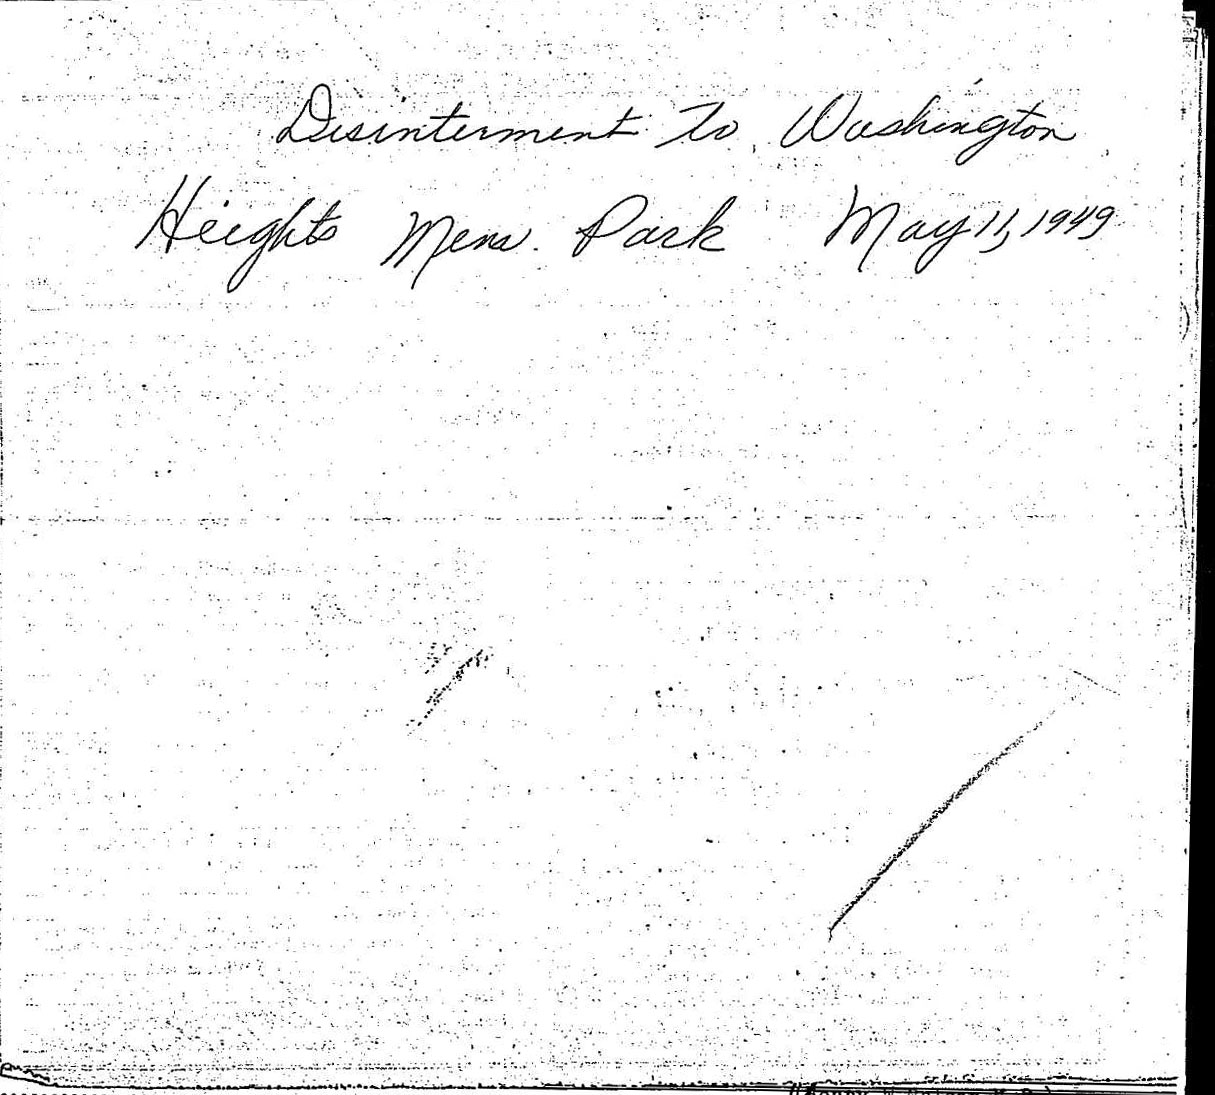 Disinterment To Washington
Heights Mem. Park May 11, 1949